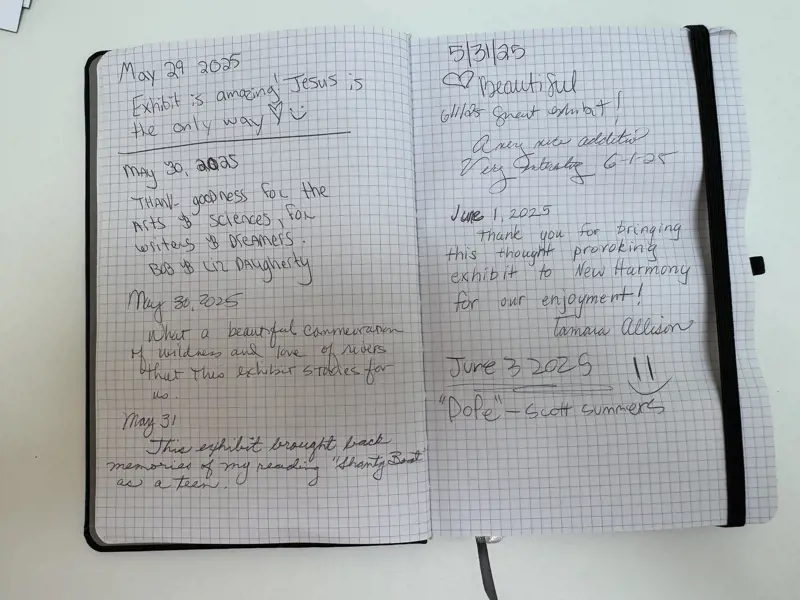 May 29 2025
Exhibit is amazing! Jesus is
the only way ♡ :)
MAY 30, 2025
THANK goodness for the
Arts & Sciences, for
writers & Dreamers.
BOB & LIZ DAugherty
May 30, 2025
What a beautiful
of wildness and love of rivers
that this exhibit for
us.
May 31
This exhibit brought back
memories of my reading "Shanty Boat"
as a teen.
5/31/25
♡ Beautiful
6/1/25 Great exhibit!
A very nice addition
Very 6-1-25
June 1, 2025
Thank you for bringing
this thought provoking
exhibit to New Harmony
for our enjoyment!
Tamara Allison
June 3 2025
"Dope" - Scott Summers